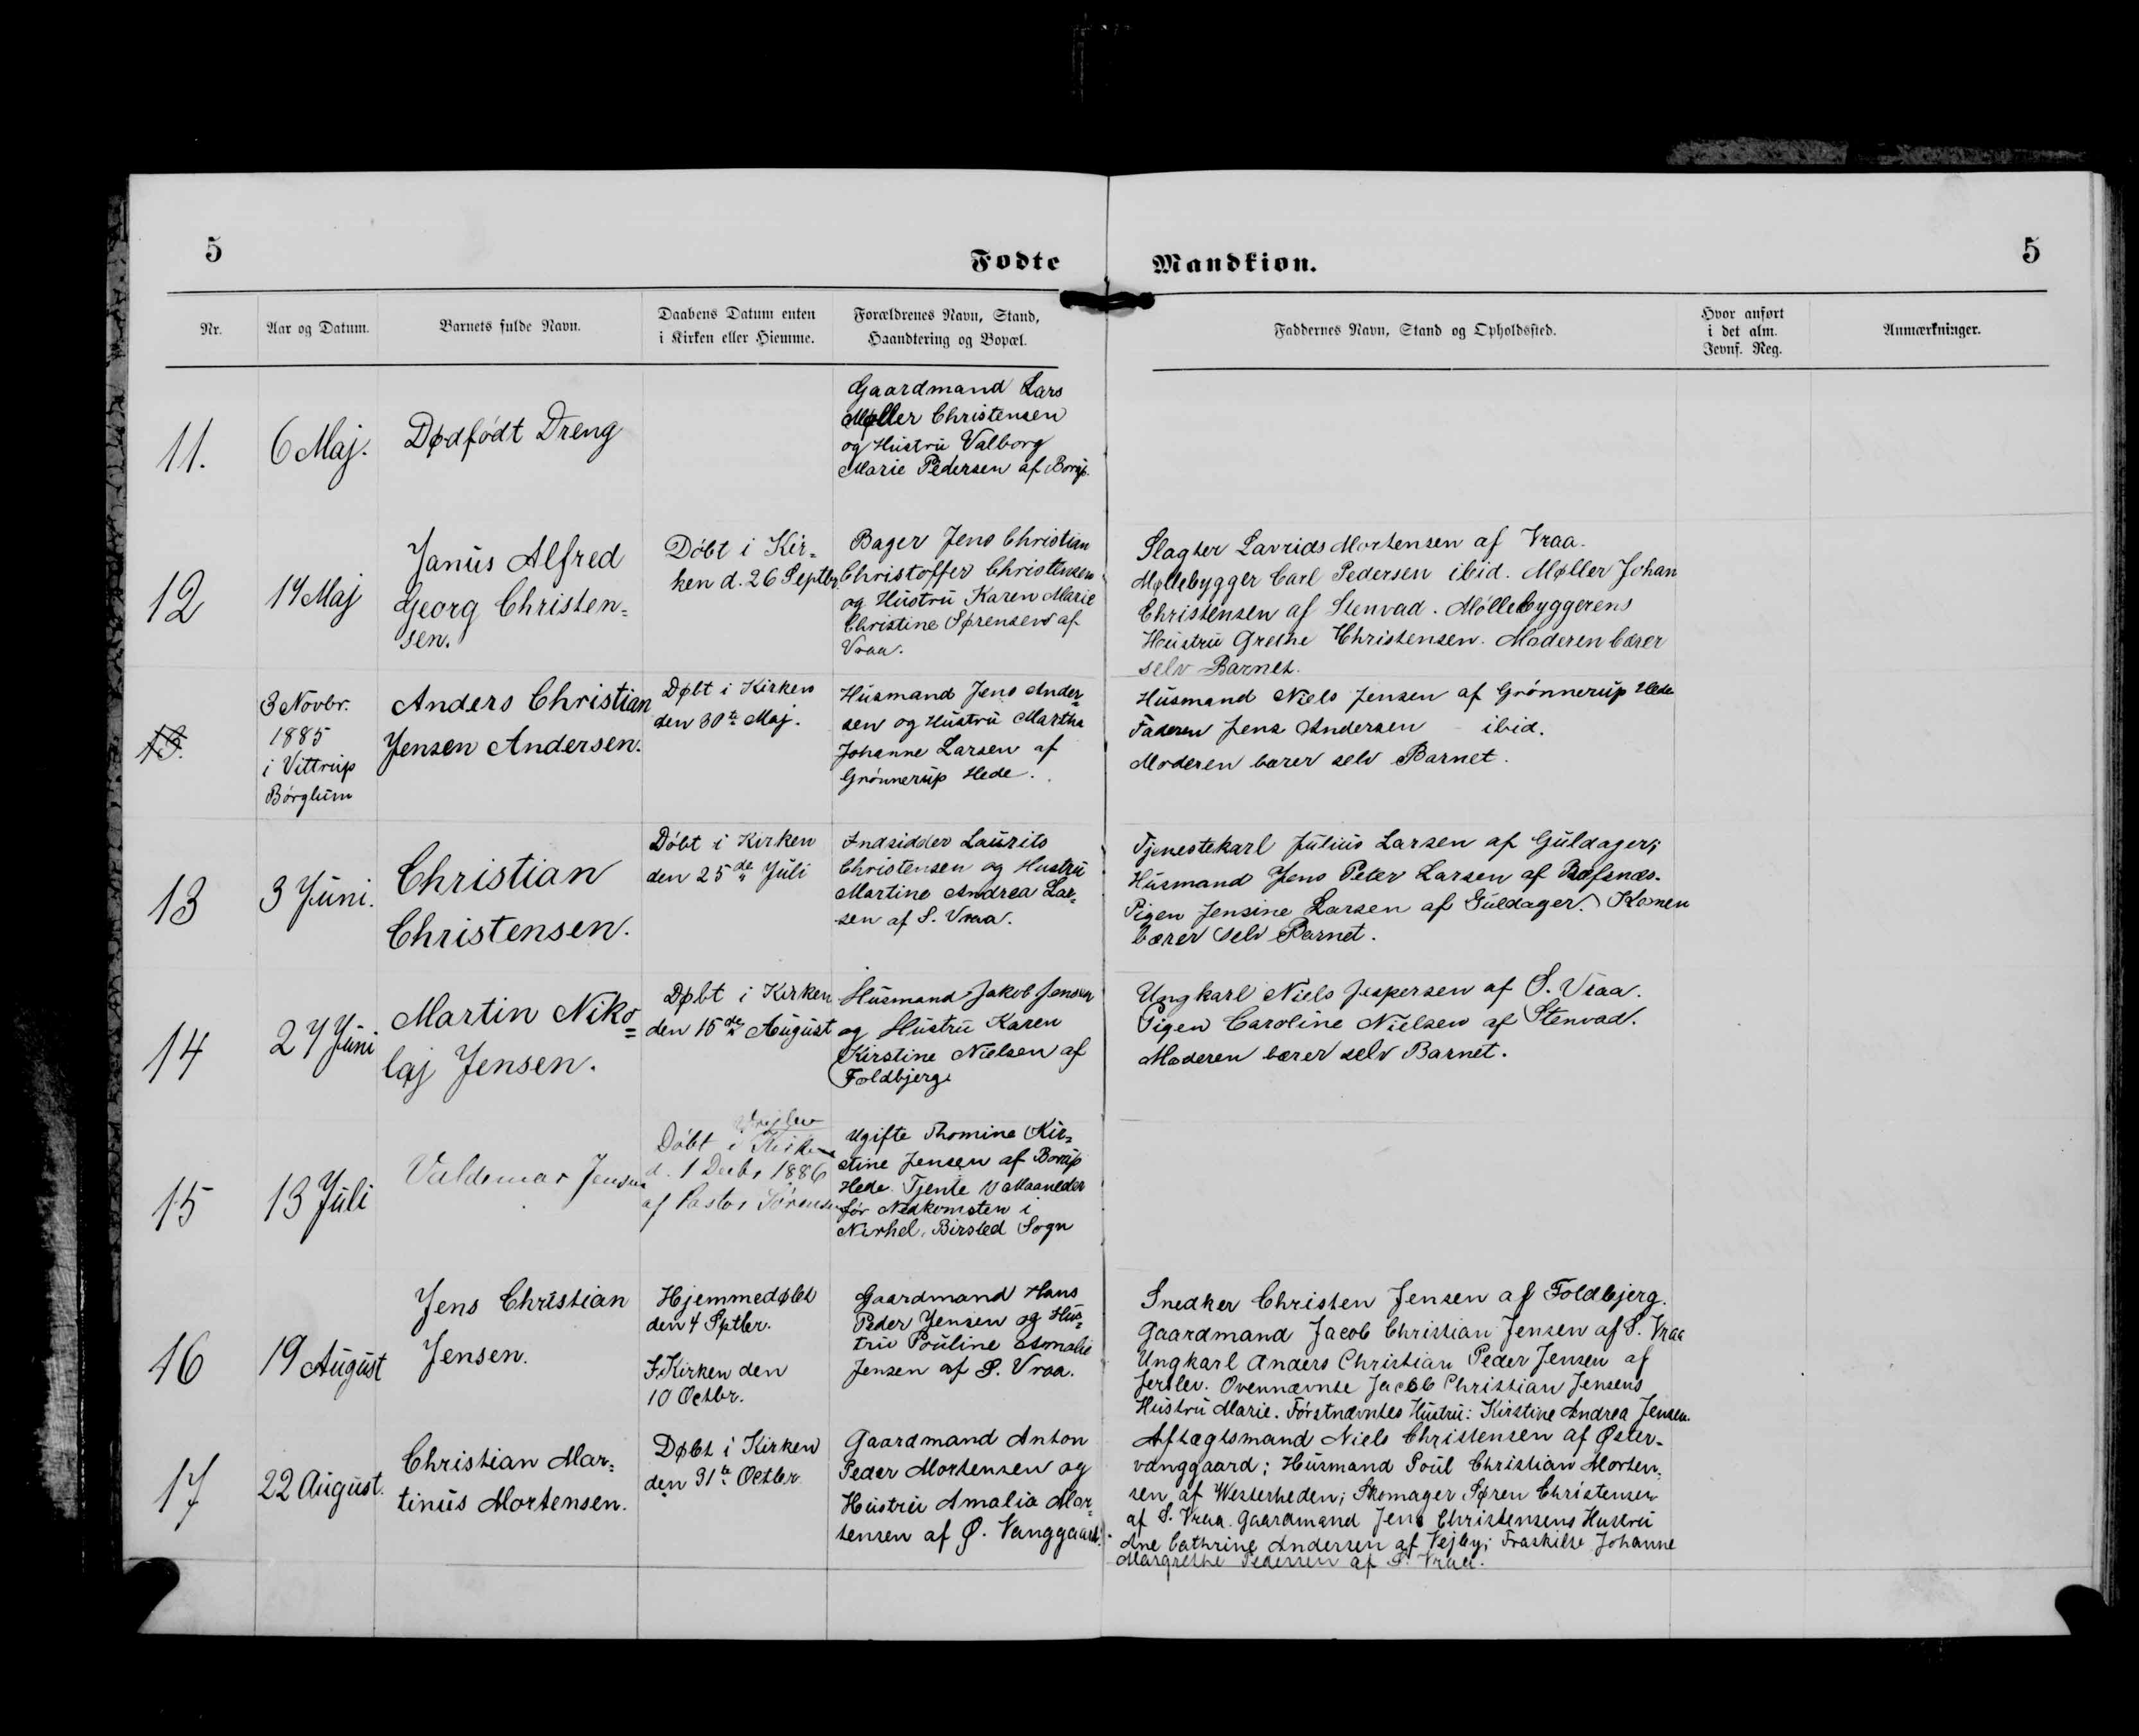 5
Fødte
Mandkiøn.
5
Nr.
Aar og Datum.
Barnets fulde Navn.
Daabens Datum enten
i Kirken eller Hiemme.
Forældrenes Navn, Stand,
Haandtering og Bopæl.
Faddernes Navn, Stand og Opholdssted.
Hvor anført
i det alm.
Jevnf. Reg.
Anmærkninger.
11.
6 Maj.
Dødfödt Dreng
Gaardmand Lars
Møller Christensen
og Hustru Valborg
Marie Pedersen af
12
14 Maj
Janus Alfred
Georg Christen=
sen.
Döbt i Kir=
ken d. 26 Septbr.
Bager Jens Christian
Christoffer Christensen
og Hustru Karen Marie
Christine Sørensen af
Vraa.
Slagter Lavrids Mortensen af Vraa.
Møllebygger Carl Pedersen ibid. Møller Johan
Christensen af Stenvad. Möllebyggerens
Hustru Grethe Christensen. Moderen bærer
selv Barnet.
13.
3 Novbr.
1885
i Vittrup
Börglum
Anders Christian
Jensen Andersen.
Døbt i Kirken
den 30te Maj.
Husmand Jens Ander=
sen og Hustru Martha
Johanne Larsen af
Grönnerup Hede.
Husmand Niels Jensen af Grönnerup Hede
Faderen Jens Andersen ibid.
Moderen bærer selv Barnet.
13
3 Juni.
Christian
Christensen.
Döbt i Kirken
den 25de Juli
Indsidder Laurits
Christensen og Hustru
Martine Andrea Lar=
sen af S. Vraa.
Tjenestekarl Julius Larsen af Guldager;
Husmand Jens Peter Larsen af
Pigen Jensine Larsen af Guldager. Konen
bærer selv Barnet.
14
27 Juni
Martin Niko=
laj Jensen.
Døbt i Kirken
den 15de August
Husmand Jakob Jensen
og Hustru Karen
Kirstine Nielsen af
Foldbjerg.
Ungkarl Niels Jespersen af S. Vraa.
Pigen Caroline Nielsen af Stenvad.
Moderen bærer selv Barnet.
15
13 Juli
Valdemar Jensen
Vrejlev
Döbt i Kirken
d. 1 Decbr 1886
af Pastor Sörensen
Ugifte Thomine Kir=
stine Jensen af Borup
Hede. Tjente 10 Maaneder
för Nedkomsten i
Nørhel, Birsted Sogn
16
19 August
Jens Christian
Jensen.
Hjemmedøbt
den 4 Septbr.
I Kirken den
10 Octbr.
Gaardmand Hans
Peder Jensen og Hus=
tru Pouline Amalie
Jensen af S. Vraa.
Snedker Christen Jensen af Foldbjerg.
Gaardmand Jacob Christian Jensen af S. Vraa
Ungkarl Anders Christian Peder Jensen af
Jerslev. Ovennævnte Jacob Christian Jensens
Hustru Marie. Förstnævntes Hustru: Kirstine Andrea Jensen.
17
22 August.
Christian Mar=
tinus Mortensen.
Døbt i Kirken
den 31te Octbr
Gaardmand Anton
Peder Mortensen og
Hustru Amalia Mor=
tensen af Ø. Vanggaard.
Aftægtsmand Niels Christensen af Øster=
vanggaard; Husmand Poul Christian Morten=
sen af Westerheden; Skomager Søren Christensen
af S. Vraa. Gaardmand Jens Christensens Hustru
Ane Cathrine Andersen af Vejby; Fraskilte Johanne
Margrethe Pedersen af S. Vraa.